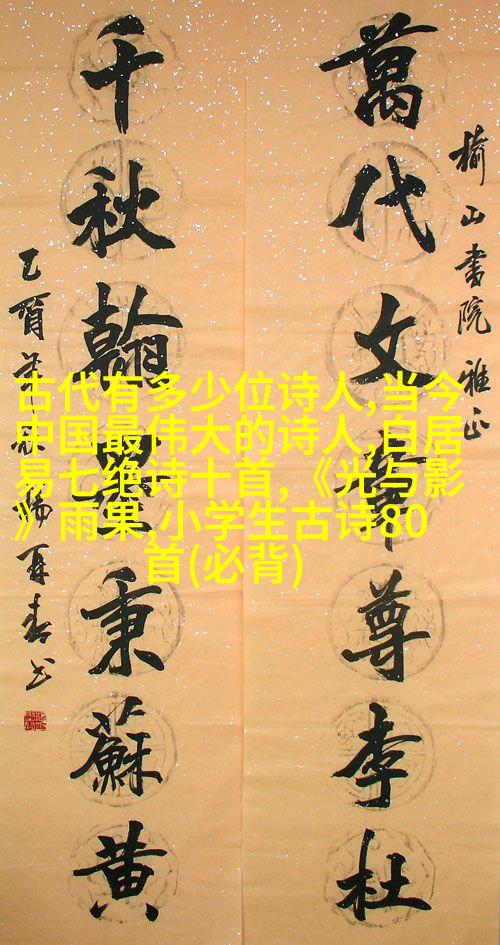 榆山書院雅正
萬代文章尊李杜
千秋翰墨秉蘇黄
乙酉年秋楊再春书
古代有多少位诗人,当今
中国最伟大的诗人,白居
易七绝诗十首,《光与影
》雨果,小学生古诗80
首(必背)